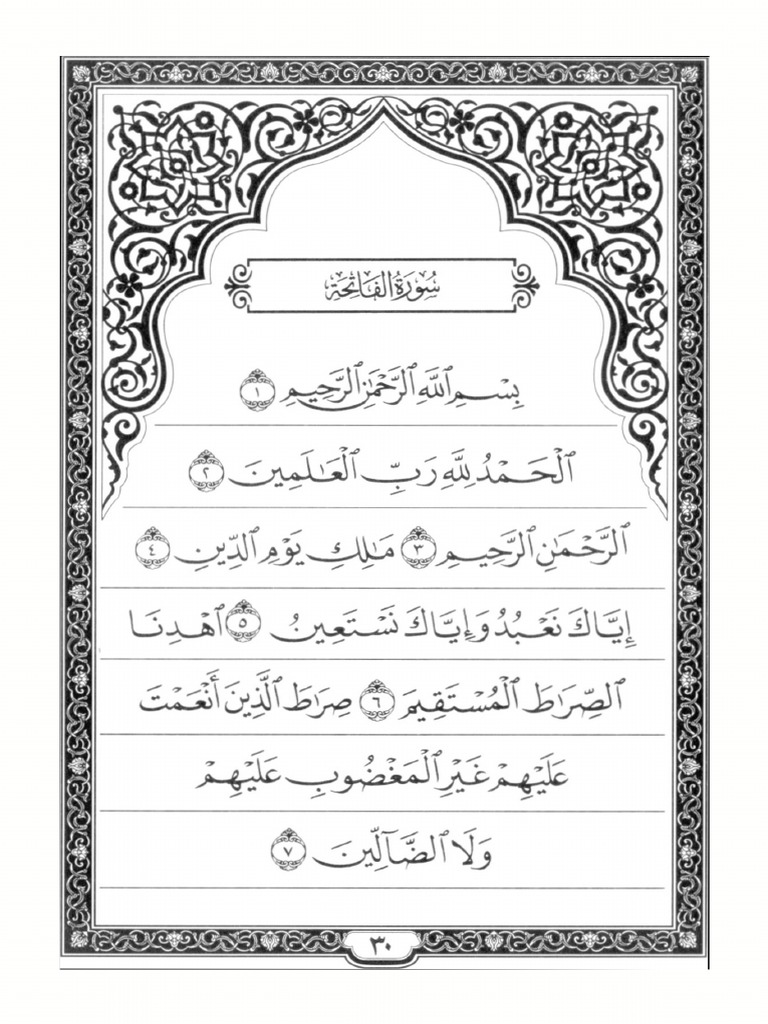 سُورَةُ الفَاتِحَة
بِسْمِ ٱللَّهِ ٱلرَّحْمَٰنِ ٱلرَّحِيمِ ١
ٱلْحَمْدُ لِلَّهِ رَبِّ ٱلْعَٰلَمِينَ ٢
ٱلرَّحْمَٰنِ ٱلرَّحِيمِ ٣ مَٰلِكِ يَوْمِ ٱلدِّينِ ٤
إِيَّاكَ نَعْبُدُ وَإِيَّاكَ نَسْتَعِينُ ٥ ٱهْدِنَا
ٱلصِّرَٰطَ ٱلْمُسْتَقِيمَ ٦ صِرَٰطَ ٱلَّذِينَ أَنْعَمْتَ
عَلَيْهِمْ غَيْرِ ٱلْمَغْضُوبِ عَلَيْهِمْ
وَلَا ٱلضَّآلِّينَ ٧
٣٠